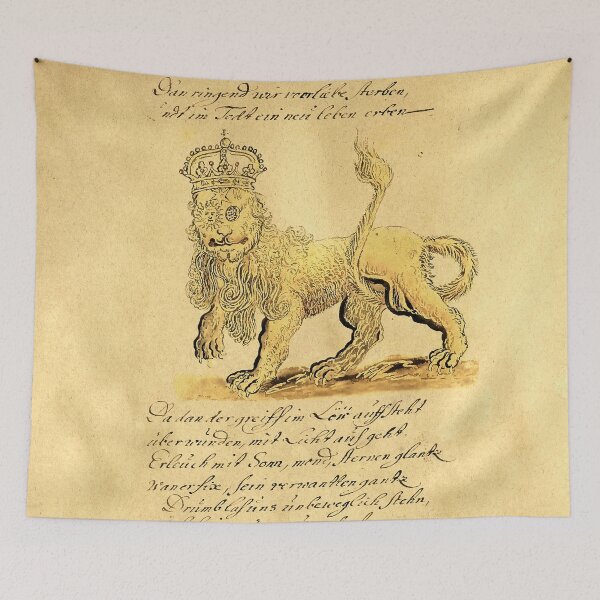 Dan ringend wir vor liebe sterben,
Undt im Todt ein neu leben erben
Da dan der greiff im Löw auffsteht
über wunden, mit Licht aus geht
Erleuch mit Sonn, mond, Sternen glantz
wan er fix, sein verwantlen gantz
Drumb las uns unbeweglich stehn,